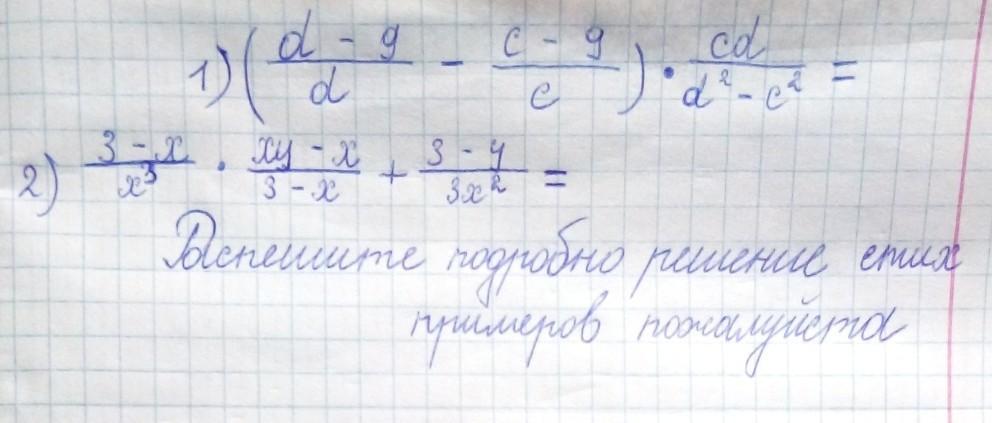 1) (d - 9/d - c - 9/c) · cd/d² - c² =
2) 3 - x/x³ · xy - x/3 - x + 3 - y/3x² =
Распешите подробно решение етих
примеров пожалуйста